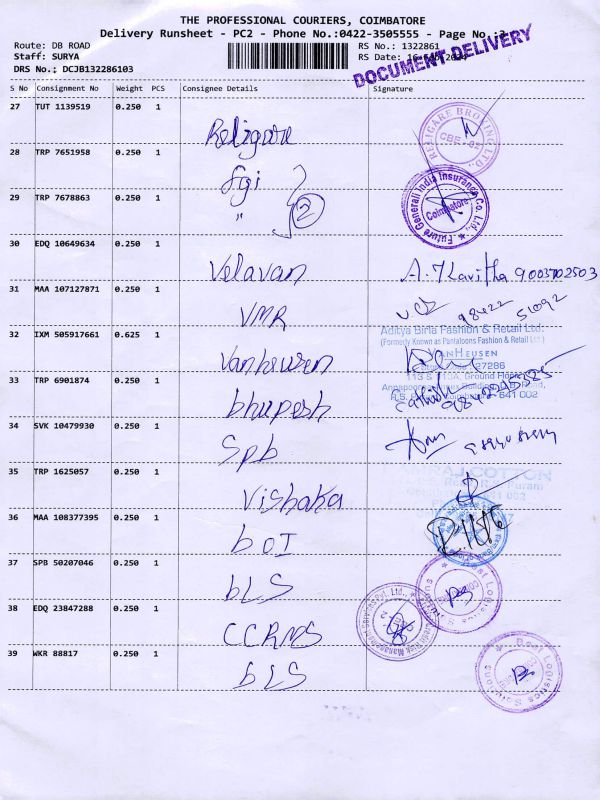 THE PROFESSIONAL COURIERS, COIMBATORE
Delivery Runsheet - PC2 - Phone No.:0422-3505555 - Page No.:3
Route: DB ROAD
Staff: SURYA
DRS No.: DCJB132286103
RS No.: 1322861
RS Date: 16
DOCUMENT DELIVERY
S No Consignment No Weight PCS Consignee Details Signature
27 TUT 1139519 0.250 1 Religare
RELIGARE BROKING LTD.,
28 TRP 7651958 0.250 1 fgi
Future Generali India Insurance Co. Ltd.,
Coimbatore
29 TRP 7678863 0.250 1 " 2
30 EDQ 10649634 0.250 1 Velavan A. Kavitha 9003702503
31 MAA 107127871 0.250 1 VMR 98422 51092
Aditya Birla Fashion & Retail Ltd.
(Formerly Known as Pantaloons Fashion & Retail Ltd.)
VANHEUSEN
32 IXM 505917661 0.625 1 Vanheusen
33 TRP 6901874 0.250 1 bhupesh Sathish
641 002
34 SVK 10479930 0.250 1 Spb
COTTON
35 TRP 1625057 0.250 1 Vishaka
36 MAA 108377395 0.250 1 bOI
37 SPB 50207046 0.250 1 bLS
38 EDQ 23847288 0.250 1 CCRMS
39 WKR 88817 0.250 1 bLS